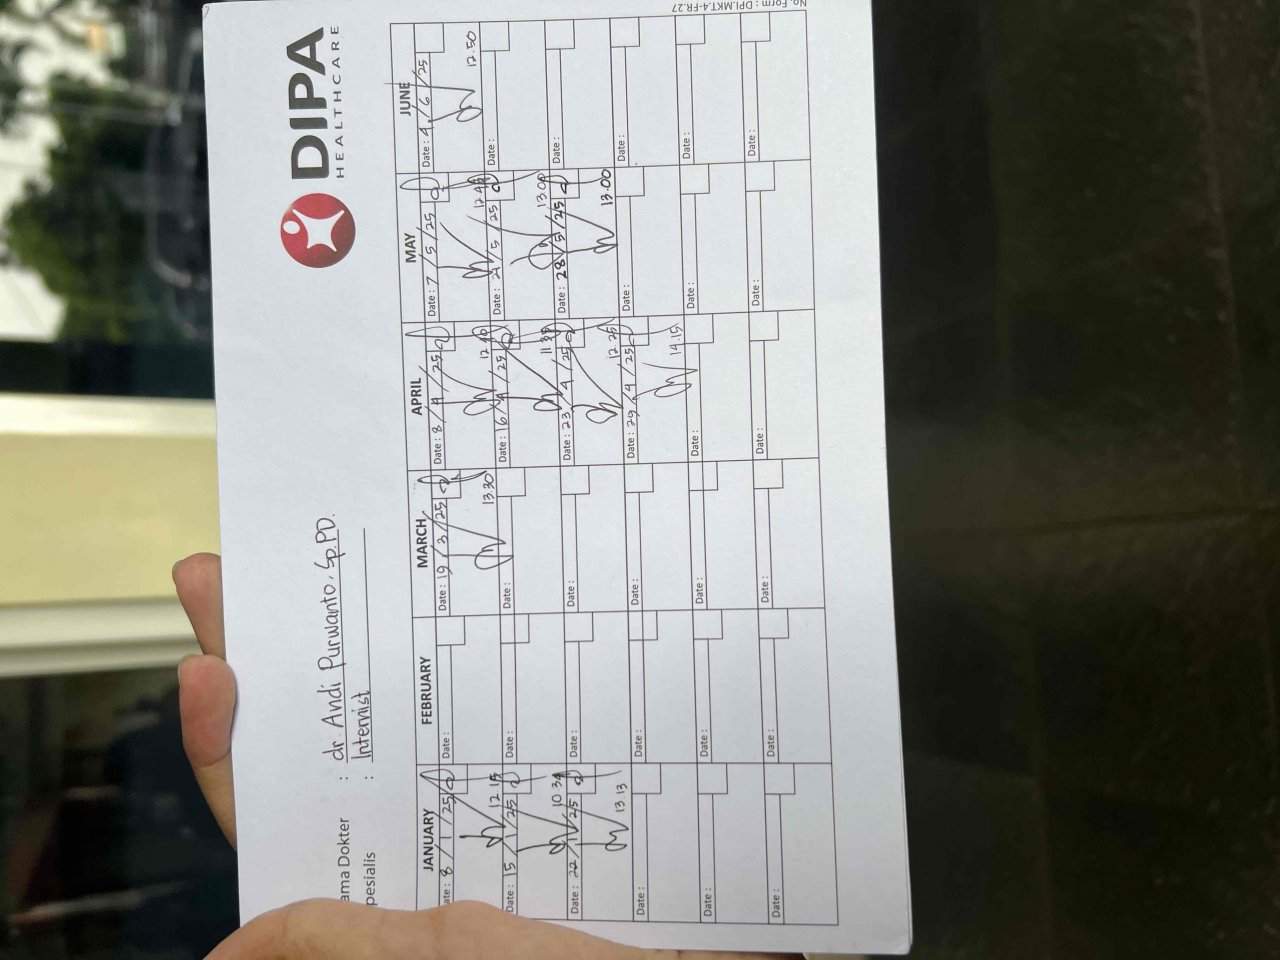 DIPA
HEALTHCARE
ama Dokter : dr. Andi Purwanto, Sp.PD.
pesialis : Internist
JANUARY FEBRUARY MARCH APRIL MAY JUNE
ate : 8 / 1 / 25 Date : Date : 19 / 3 / 25 Date : 8 / 4 / 25 Date : 7 / 5 / 25 Date : 4 / 6 / 25
12 15 13.30 12.50
Date : 15 / 1 / 25 Date : Date : Date : 16 / 4 / 25 Date : 21 / 5 / 25 Date :
10 34 13.00
Date : 22 / 1 / 25 Date : Date : Date : 23 / 4 / 25 Date : 28 / 5 / 25 Date :
13 13 12.25 13.00
Date : Date : Date : Date : 29 / 4 / 25 Date : Date :
14.15
Date : Date : Date : Date : Date : Date :
Date : Date : Date : Date : Date : Date :
No. Form : DPI.MKT.4-FR.27